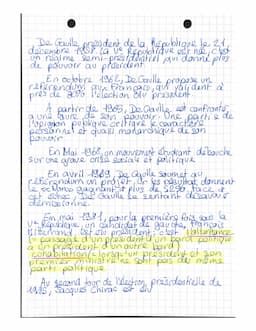 De Gaulle président de la République le 21
décembre 1958. La Ve République est née, c'est
un régime semi-présidentiel qui donne plus
de pouvoir au président.
En octobre 1962, De Gaulle propose un
référendum aux Français, qui valident à
près de l'élection du président
A partir de 1965, De Gaulle est confronté,
a une de son pouvoir. Une partie de
l'opinion publique critique le caractère
personnel et quasi monarchique de son
pouvoir
En Mai 1968, un mouvement étudiant débouche
sur une grave crise sociale et politique
En avril 1969, De Gaulle soumet au
référendum un projet. les résultats donnent
le gagnant plus de 52%. Face à
cet échec, De Gaulle se sentant désavoué
démissionne.
En mai 1981, pour la première fois sous la
Ve République, un candidat de gauche, François
Mitterrand est élu président; c'est l'alternance
(= passage d'un président d'un bord politique
à un président d'un autre bord)
cohabitation = lorsqu'un président et son
premier ministre ne sont pas du même
parti politique
Au second tour de l'élection présidentielle de
1995, Jacques Chirac est élu